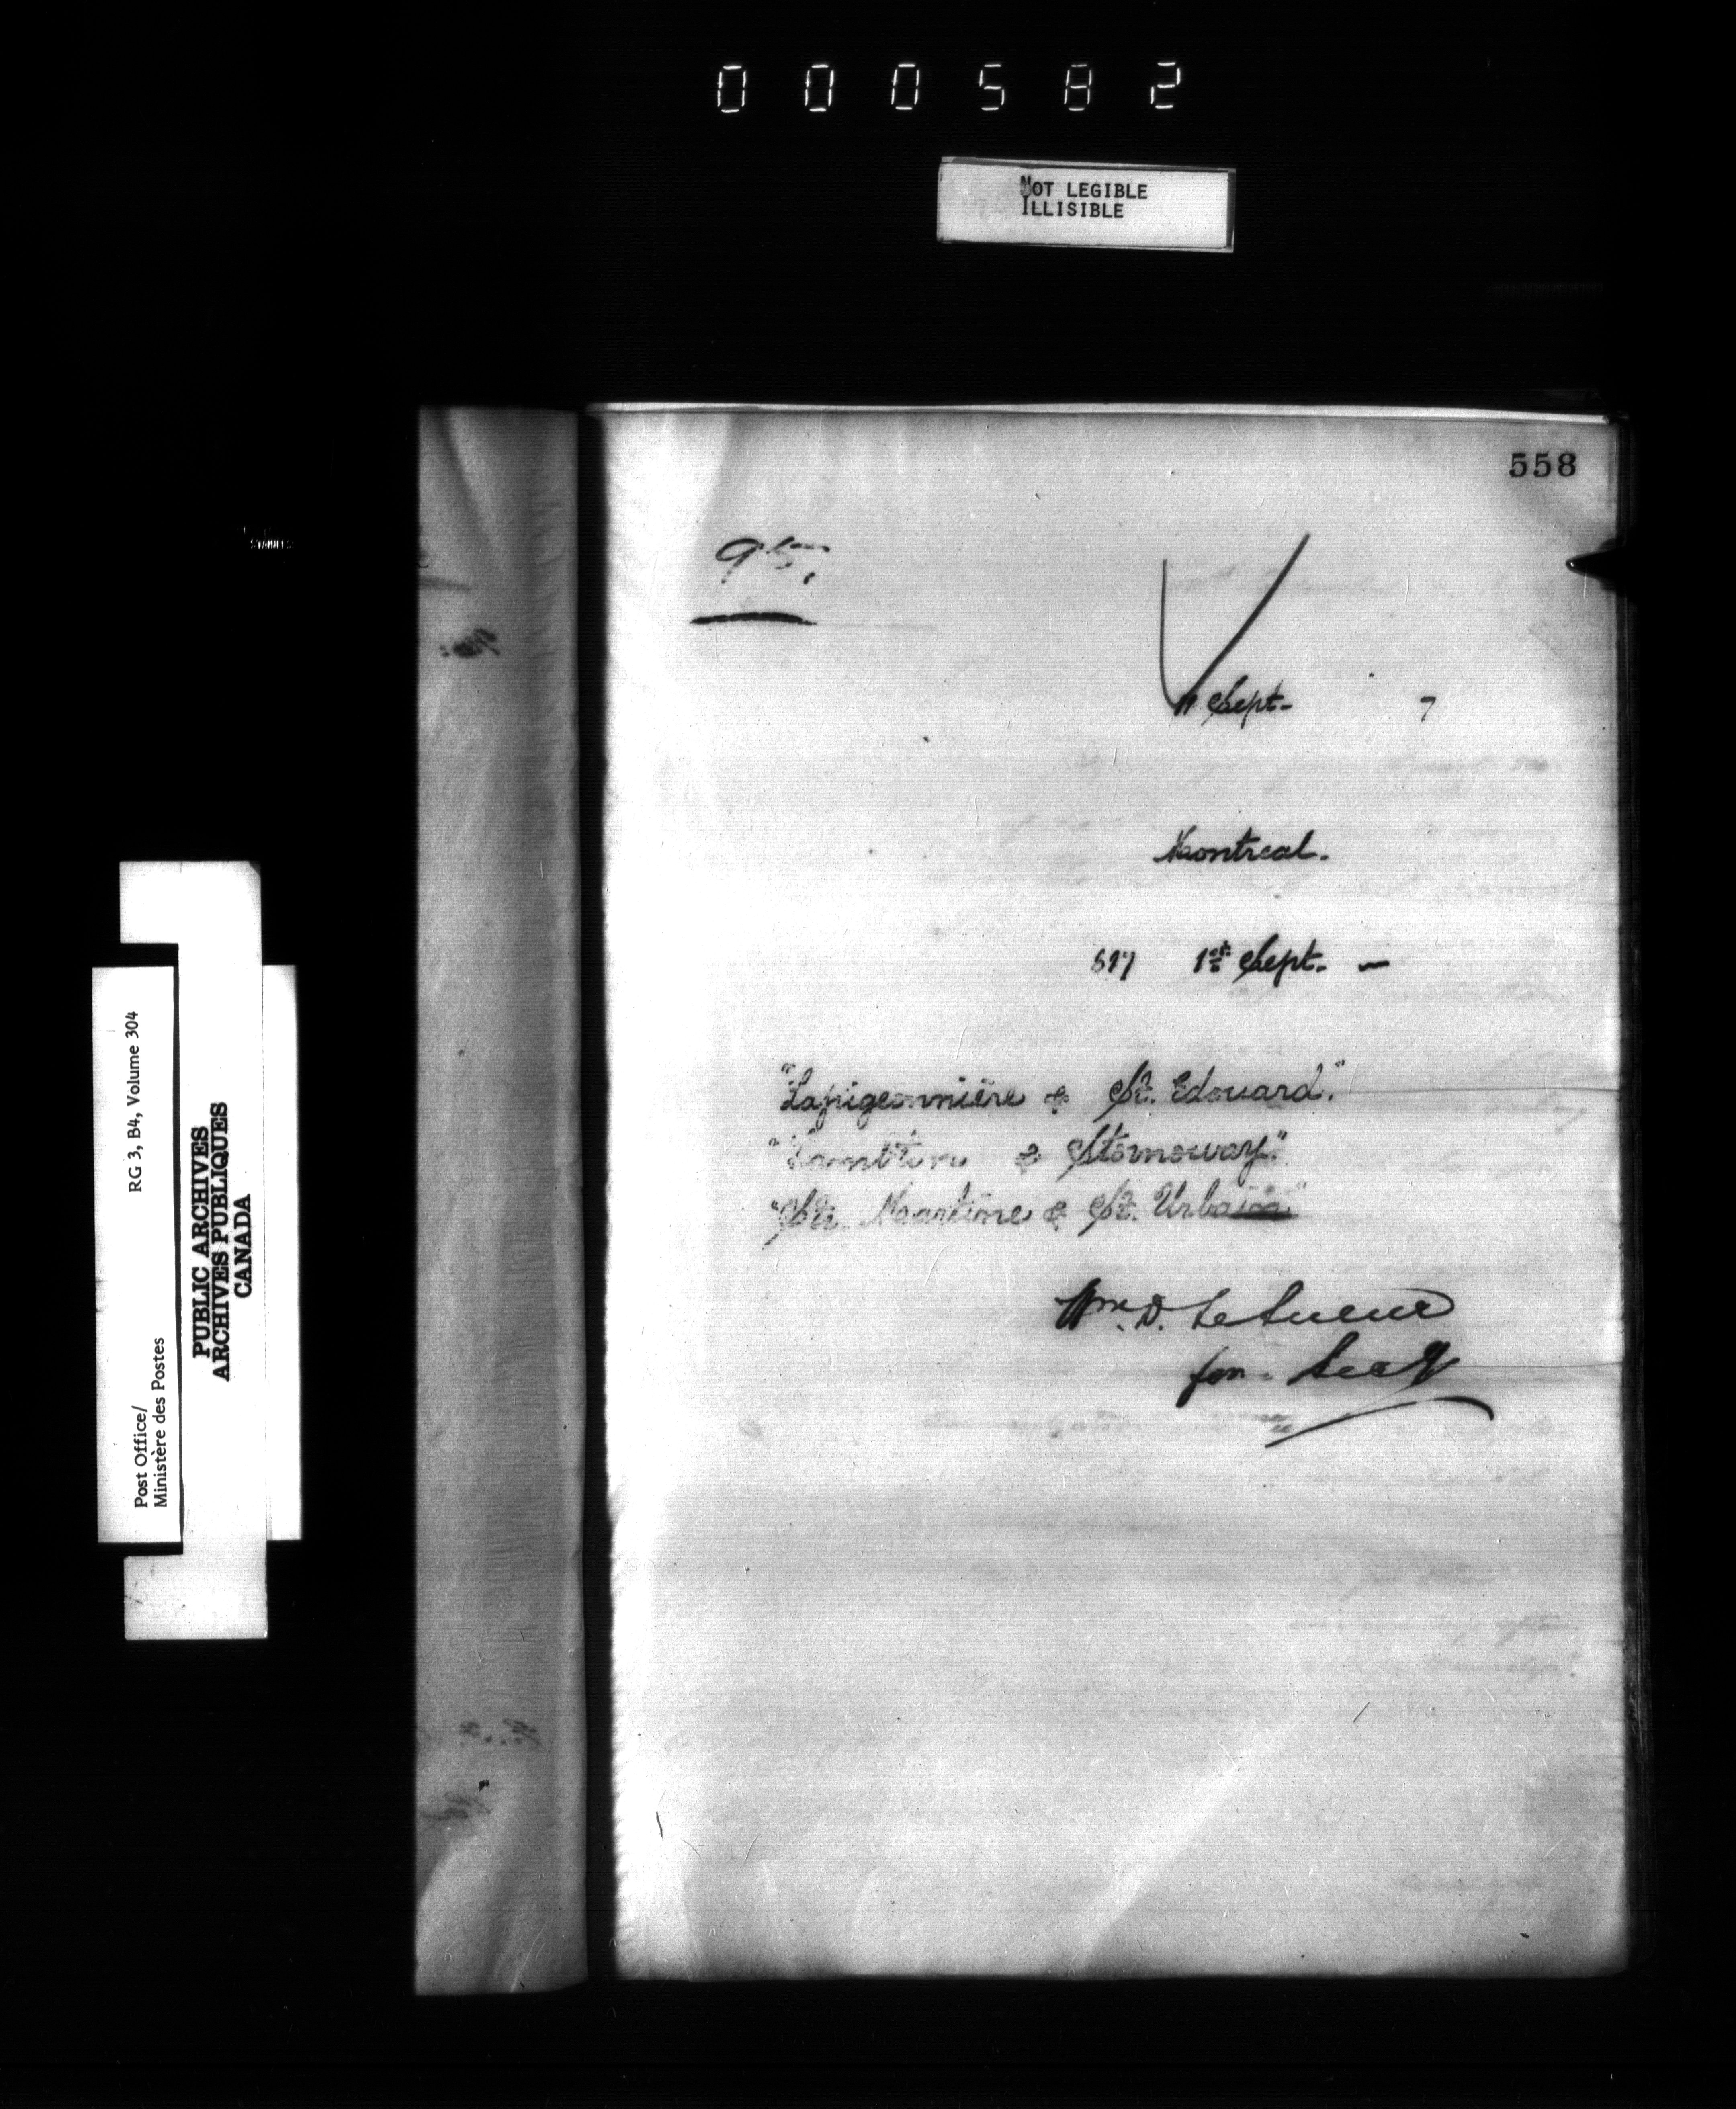 000582
NOT LEGIBLE
ILLISIBLE
558
95.
11 Sept- 7
Montreal.
517 1st Sept. –
"Lapigeonnière & St. Edouard."
"Lambton & Stornoway."
"Ste. Martine & St. Urbain"
Wm. D. LeSueur
for. Secy
Post Office/
Ministère des Postes
RG 3, B4, Volume 304
PUBLIC ARCHIVES
ARCHIVES PUBLIQUES
CANADA